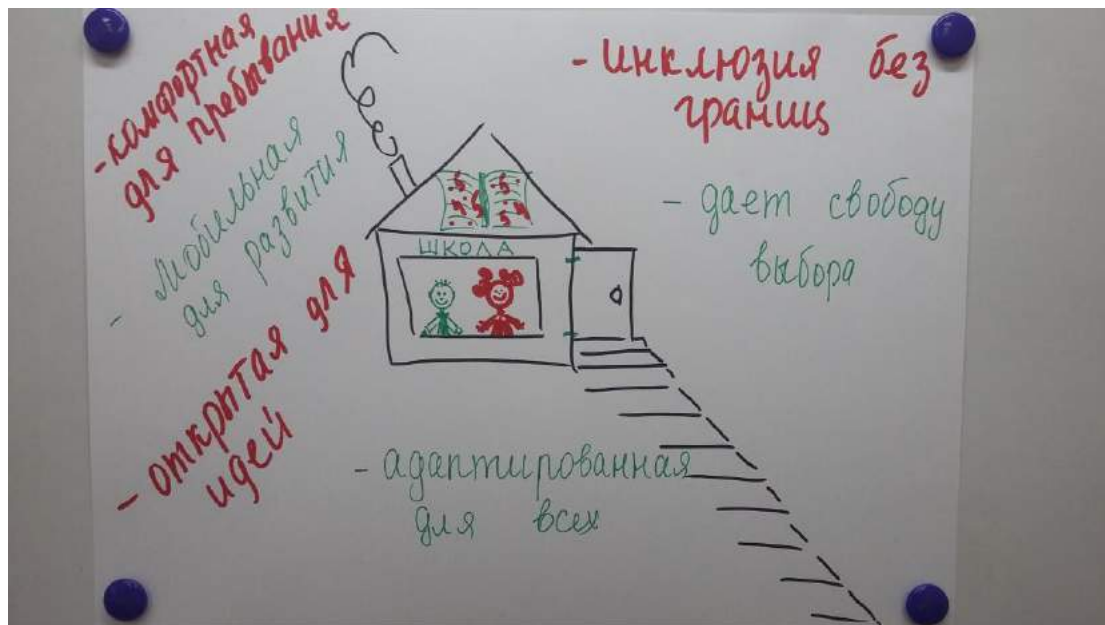 - комфортная
для пребывания
- Мобильная
для развития
- открытая для
идей
ШКОЛА
- инклюзия без
границ
- дает свободу
выбора
- адаптированная
для всех